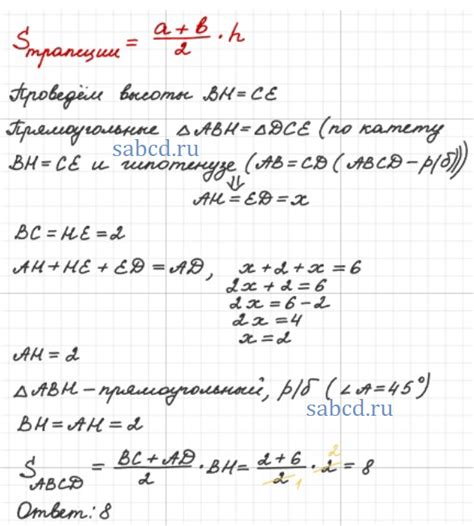 Sтрапеции = a + b / 2 · h
Проведём высоты BH = CE
Прямоугольные △ABH = △DCE (по катету
sabcd.ru
BH = CE и гипотенузе (AB = CD (ABCD – р/б)))
⇓
AH = ED = x
BC = HE = 2
AH + HE + ED = AD, x + 2 + x = 6
2x + 2 = 6
2x = 6 - 2
2x = 4
x = 2
AH = 2
△ABH – прямоугольный, р/б (∠A = 45°)
sabcd.ru
BH = AH = 2
SABCD = BC + AD / 2 · BH = 2 + 6 / 2 1 · 2 2 = 8
Ответ: 8